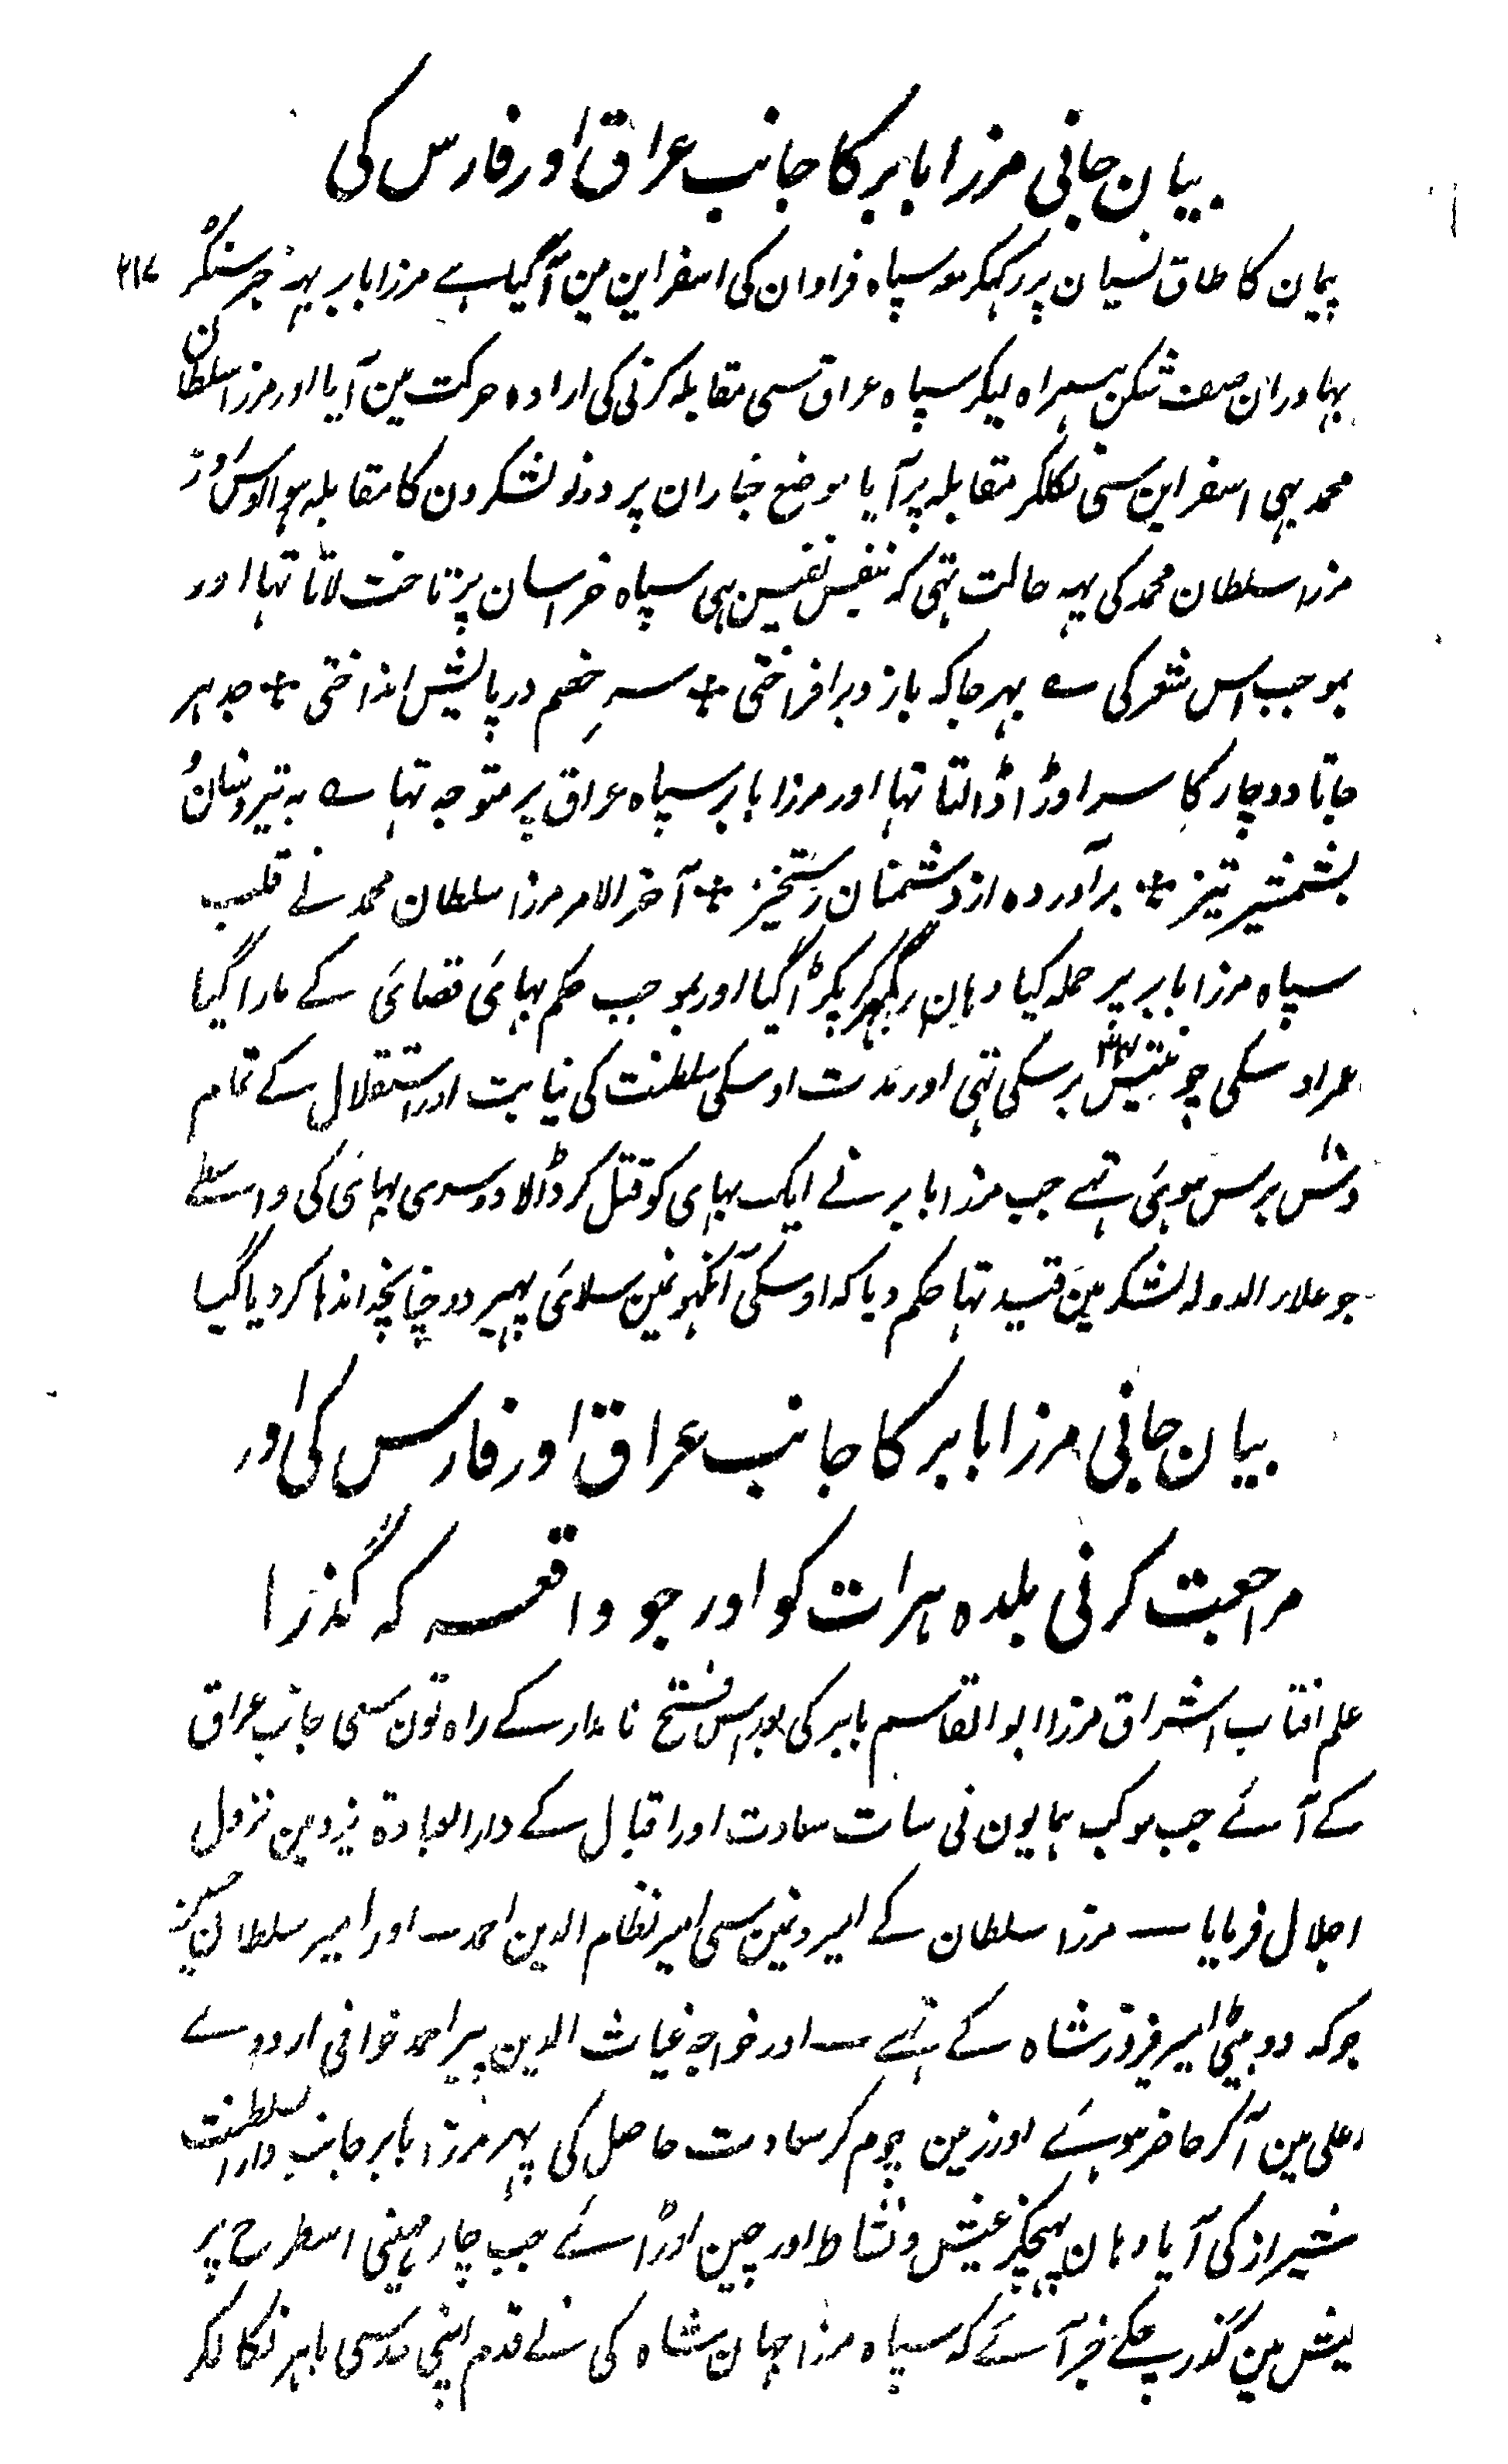 بیان جانی مرزا بابر کا جانب عراق اور فارس کی
۲۱۷
پیمان کا طاق نسیان پر رکہکر معہ سپاہ فراوان کی اسفراین مین آگیا ہے مرزا بابر یہہ خبر سنکر
بہادران صف شکن ہمراہ لیکر سپاہ عراق سی مقابلہ کرنی کی ارادہ حرکت مین آیا اور مرزا سلطان
محمد بہی اسفراین سی نکلکر مقابلہ پر آیا موضع خباران پر دونو لشکرون کا مقابلہ ہوا اوس روز
مرزا سلطان محمد کی یہہ حالت تہی کہ بنفس نفیس ہی سپاہ خراسان پر تاخت لاتا تہا اور
بموجب اس شعر کی ے بہر جا کہ بازو برافراختی ٭ سرِ خصم در پایش انداختی ٭ جدہر
جاتا دو چار کا سر اوڑا ڈالتا تہا اور مرزا بابر سپاہ عراق پر متوجہ تہا ے بہ تیر و سنان و
بشمشیر تیز ٭ برآوردہ از دشمنان رستخیز ٭ آخر الامر مرزا سلطان محمد نے قلب
سپاہ مرزا بابر پر حملہ کیا وہان گہر کر پکڑا گیا اور بموجب حکم بہائی قصائی کے مارا گیا
عمر اوسکی چونتیس ۳۴ برسکی تہی اور مدت اوسکی سلطنت کی نیابت اور استقلال کے تمام
دس برس ہوئی تہے جب مرزا بابر نے ایک بہای کو قتل کر ڈالا دوسری بہائی کی واسطے
جو علاء الدولہ لشکر مین قید تہا حکم دیا کہ اوسکی آنکہونمین سلائی پہیر دو چنانچہ اندہا کر دیا گیا
بیان جانی مرزا بابر کا جانب عراق اور فارس کی اور
مراجعت کرنی بلدہ ہرات کو اور جو واقعہ کہ گذرا
علم افتاب اشراق مرزا ابو القاسم بابر کی بعد اس فتح نامدار کے راہ تون سی جانب عراق
کے آئے جب موکب ہمایون نی سات سعادت اور اقبال کے دار العبادۃ یزد مین نزول
اجلال فرمایا ـ مرزا سلطان کے امیرونمین سی امیر نظام الدین احمد ـ اور امیر سلطان حسین
جو کہ دو بیٹی امیر فیروز شاہ کے تہے ـ اور خواجہ غیاث الدین پیر احمد خوافی اردوے
اعلی مین آکر حاضر ہوئے اور زمین چوم کر سعادت حاصل کی پہر مرزا بابر جانب دار السلطنت
شیراز کی آیا وہان پہنچکر عیش و نشاط اور چین اوڑائے جب چار مہینی اسطرح پر
عیش مین گذر چکے خبر آئے کہ سپاہ مرزا جہان شاہ کی نے قدم اپنی حد سی باہر نکالکر